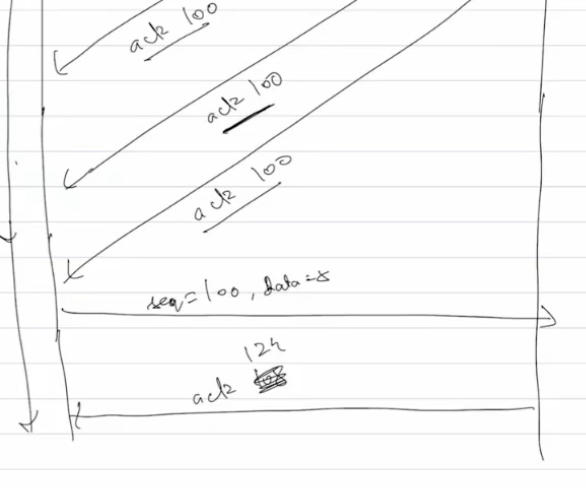 ack 100
ack 100
ack 100
seq=100, data=5
124
ack